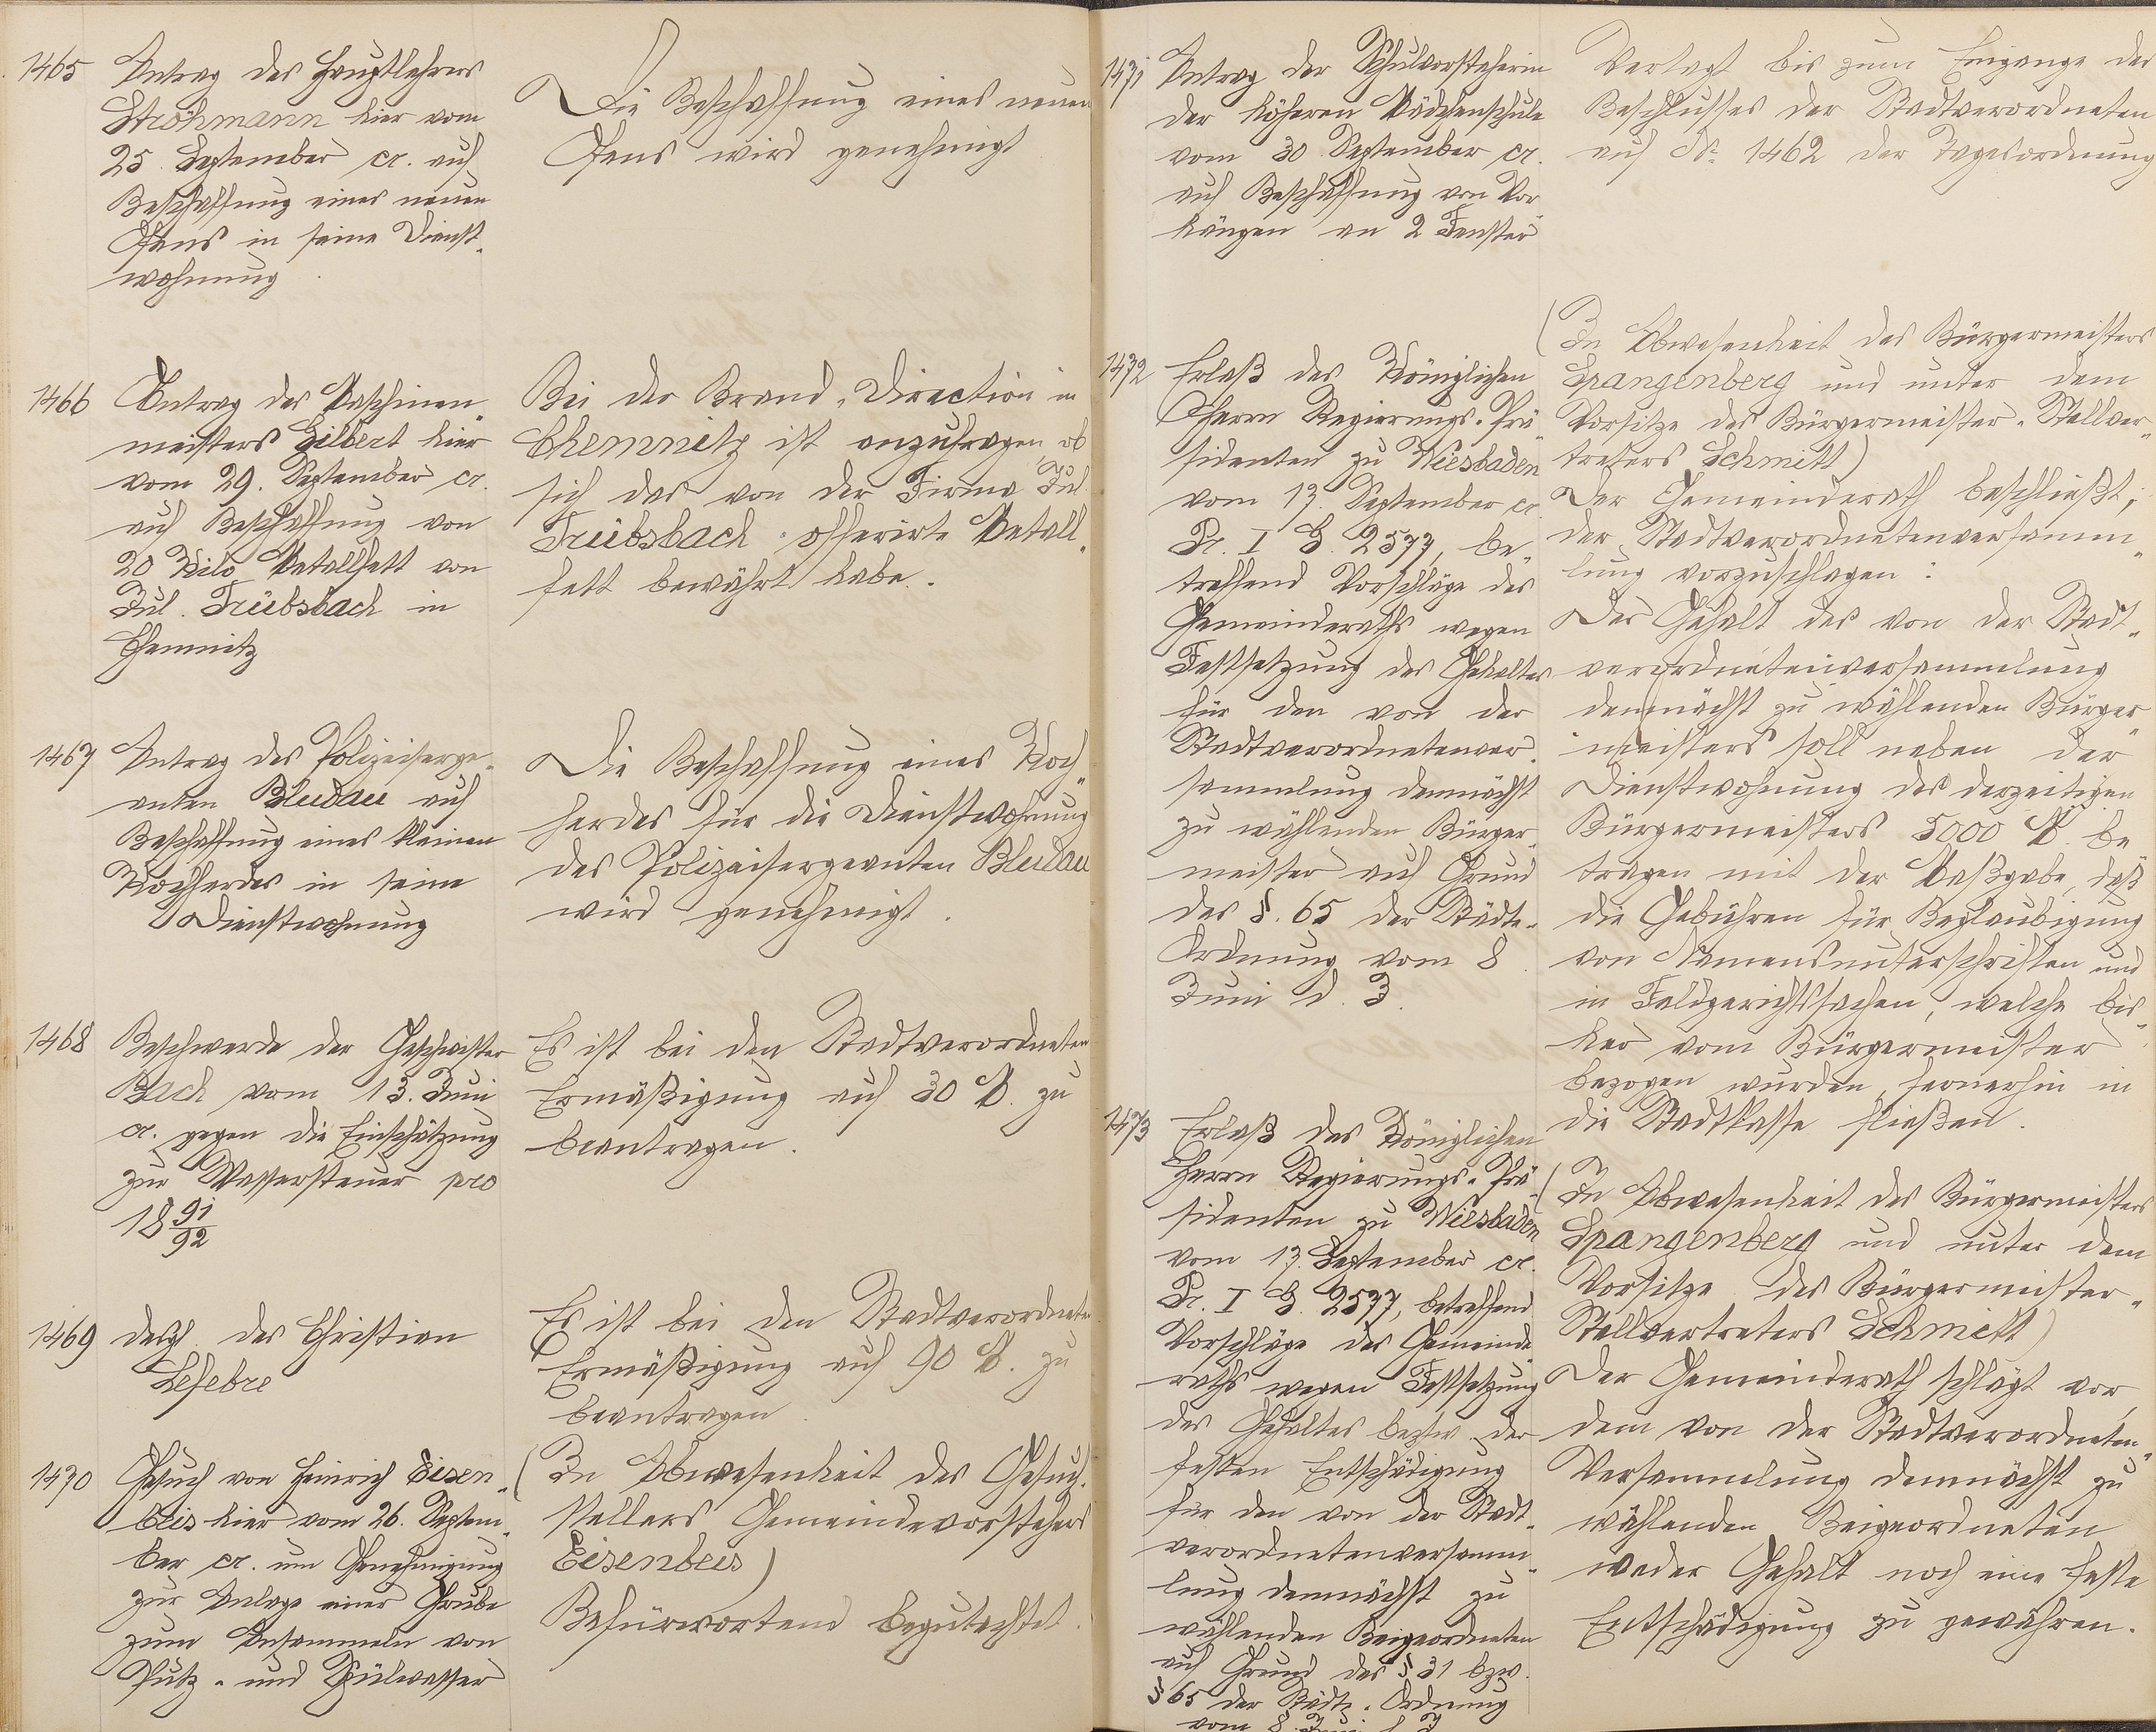 1465 Antrag des Hauptlehrers
Strohmann hier vom
25. September cr. auf
Beschaffung eines neuen
Ofens in seine Dienst-
wohnung
Die Beschaffung eines neuen
Ofens wird genehmigt
1466 Antrag des Maschinen-
meisters Hilbert hier
vom 29. September cr.
auf Beschaffung von
20 Kilo Metallfett von
Jul. Trübsbach in
Chemnitz
Bei der Brand-Direction in
Chemnitz ist anzufragen, ob
sich das von der Firma Jul.
Trübsbach offerirte Metall-
fett bewährt habe.
1467 Antrag des Polizeiserge-
anten Bludau auf
Beschaffung eines kleinen
Kochherdes in seine
Dienstwohnung
Die Beschaffung eines Koch-
herdes für die Dienstwohnung
des Polizeisergeanten Bludau
wird genehmigt.
1468 Beschwerde der Geschwister
Bach vom 13. Juni
cr. gegen die Einschätzung
zur Wassersteuer pro
18 91/92
Es ist bei den Stadtverordneten
Ermäßigung auf 30 M. zu
beantragen.
1469 desgl. des Christian
Lefebre
Es ist bei den Stadtverordneten
Ermäßigung auf 90 M. zu
beantragen.
1470 Gesuch von Heinrich Eisen-
beis hier vom 26. Septem-
ber cr. um Genehmigung
zur Anlage einer Grube
zum Ansammeln von
Putz- und Spülwasser
(In Abwesenheit des Gesuch-
stellers Gemeindevorstehers
Eisenbeis)
Befürwortend begutachtet.
1471 Antrag der Schulvorsteherin
der höheren Mädchenschule
vom 30 September cr.
auf Beschaffung von Vor-
hängen an 2 Fenster
Vertagt bis zum Eingange des
Beschlusses der Stadtverordneten
auf No 1462 der Tagesordnung
1472 Erlaß des Königlichen
Herrn Regierungs-Prä-
sidenten zu Wiesbaden
vom 17. September cr.
Pr. I G. 2577, be-
treffend Vorschläge des
Gemeinderaths wegen
Festsetzung des Gehaltes
für den von der
Stadtverordnetenver-
sammlung demnächst
zu wählenden Bürger-
meister auf Grund
des §. 65 der Städte-
Ordnung vom 8.
Juni d. J.
(In Abwesenheit des Bürgermeisters
Spangenberg und unter dem
Vorsitze des Bürgermeister-Stellver-
treters Schmitt)
Der Gemeinderath beschließt,
der Stadtverordnetenversamm-
lung vorzuschlagen:
Der Gehalt des von der Stadt-
verordnetenversammlung
demnächst zu wählenden Bürger-
meisters soll neben der
Dienstwohnung des derzeitigen
Bürgermeisters 5000 M. be-
tragen mit der Maßgabe, daß
die Gebühren für Beglaubigung
von Namensunterschriften und
in Feldgerichtssachen, welche bis-
her vom Bürgermeister
bezogen wurden, fernerhin in
die Stadtkasse fließen.
1473 Erlaß des Königlichen
Herrn Regierungs-Prä-
sidenten zu Wiesbaden
vom 17. September cr.
Pr. I G. 2577, betreffend
Vorschläge des Gemeinde-
raths wegen Festsetzung
des Gehaltes beztw. der
festen Entschädigung
für den von der Stadt-
verordnetenversamm-
lung demnächst zu
wählenden Beigeordneten
auf Grund des § 31 bzw.
§ 65 der Städte-Ordnung
vom 8. Juni d. J.
(In Abwesenheit des Bürgermeisters
Spangenberg und unter dem
Vorsitze des Bürgermeister-
Stellvertreters Schmitt)
Der Gemeinderath schlägt vor,
dem von der Stadtverordneten-
Versammlung demnächst zu
wählenden Beigeordneten
weder Gehalt noch eine feste
Entschädigung zu gewähren.